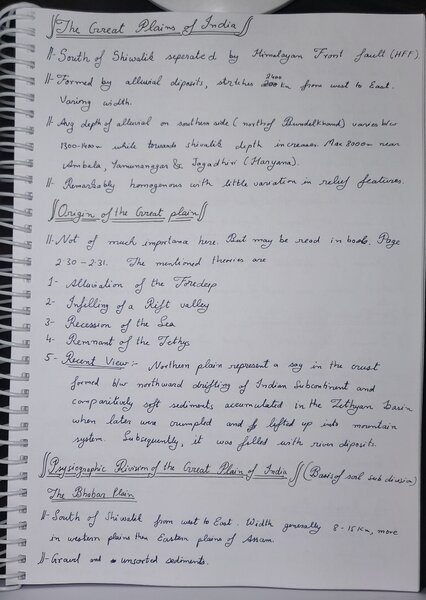 The Great Plains of India
South of Shiwalik seperated by Himalayan Front fault (HFF)
Formed by alluvial deposits, stretches 2400 km from west to East.
Varying width.
Avg depth of alluvial on southern side (north of Bundelkhand) varies b/w
1300-1400m while towards shivalik depth increases. Max 8000m near
Ambala, Yamunanagar & Jagadhri (Haryana).
Remarkably homogenous with little variation in relief features.
Origin of the Great plain
Not of much importance here. But may be read in book. Page
2.30 - 2.31. The mentioned theories are
1- Alluviation of the Foredeep
2- Infilling of a Rift valley
3- Recession of the Sea
4- Remnant of the Tethys
5- Recent View:- Northern plain represent a sag in the crust
formed b/w northward drifting of Indian Subcontinent and
comparitively soft sediments accumulated in the Tethyan basin
when later were crumpled and lifted up into mountain
system. Subsequently, it was filled with river deposits.
Psysiographic Division of the Great Plain of India (Basis of soil sub division)
The Bhabar Plain
South of Shiwalik from west to East. Width generally 8-15 km, more
in western plains then Eastern plains of Assam.
Gravel and unsorted sediments.